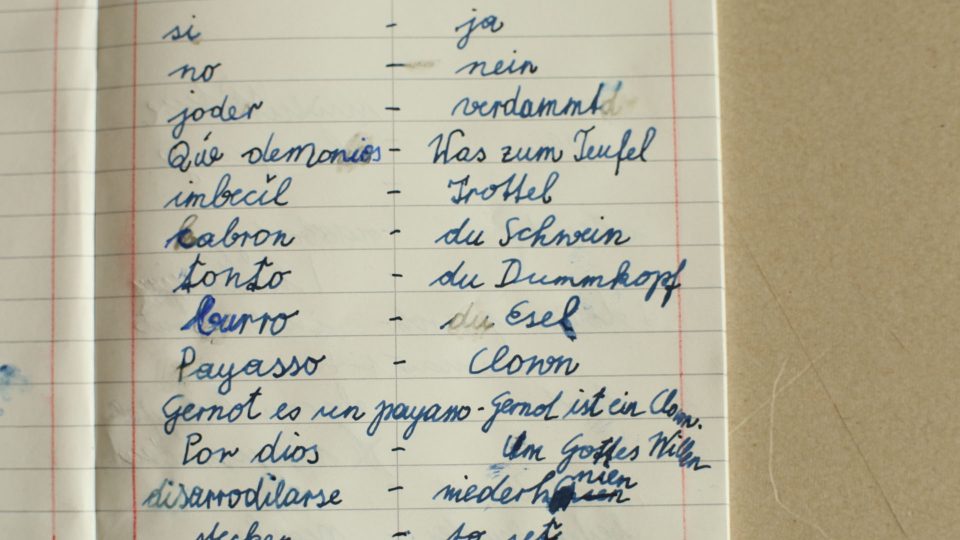 si - ja
no - nein
joder - verdammt
Qúe demonios - Was zum Teufel
imbecil - Trottel
cabron - du Schwein
tonto - du Dummkopf
burro - du Esel
Payasso - Clown
Gernot es un payasso - Gernot ist ein Clown.
Por dios - Um Gottes Willen
disarrodilarse - niederknien
stecken - to set